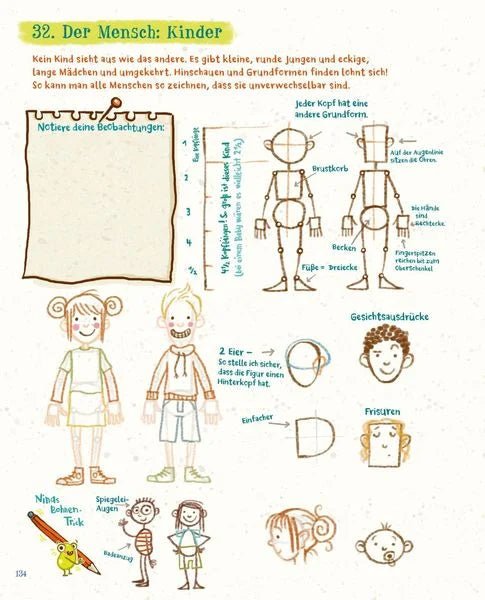 32. Der Mensch: Kinder
Kein Kind sieht aus wie das andere. Es gibt kleine, runde Jungen und eckige,
lange Mädchen und umgekehrt. Hinschauen und Grundformen finden lohnt sich!
So kann man alle Menschen so zeichnen, dass sie unverwechselbar sind.
Notiere deine Beobachtungen:
Eine Kopflänge
1
2
3
4
4½ Kopflängen! So groß ist dieses Kind
(bei einem Baby wären es vielleicht 2½)
Jeder Kopf hat eine
andere Grundform.
Auf der Augenlinie
sitzen die Ohren.
Brustkorb
Die Hände
sind
Rechtecke.
Becken
Fingerspitzen
reichen bis zum
Oberschenkel
Füße = Dreiecke
Gesichtsausdrücke
2 Eier –
So stelle ich sicher,
dass die Figur einen
Hinterkopf hat.
Einfacher
Frisuren
Ninas
Bohnen-
Trick
Spiegelei-
Augen
Badeanzug
134